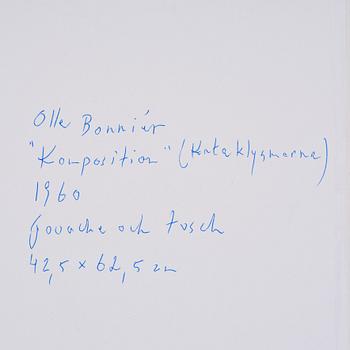 Olle Bonniér
"Komposition" (Kataklysmerna)
1960
Gouache och tusch
42,5 x 62,5 cm